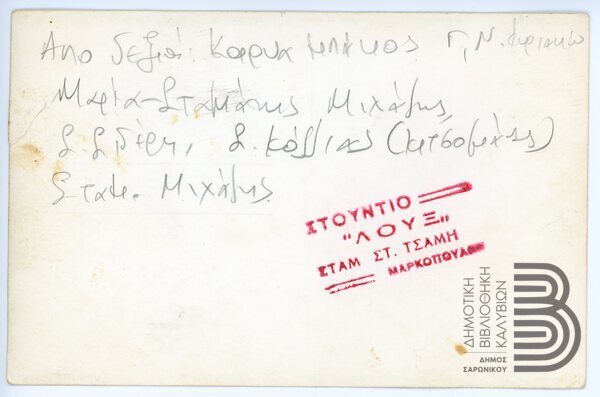 Από δεξιά: Καρυα Μπάκος Γ, Ν.
Μαρία - Σταμάτης Μιχάλης
Σ. Σιδέρη, Σ. Κόλλιας
Σταμ. Μιχάλης
ΣΤΟΥΝΤΙΟ
"ΛΟΥΞ"
ΣΤΑΜ ΣΤ. ΤΣΑΜΗ
ΜΑΡΚΟΠΟΥΛΟΝ
ΔΗΜΟΤΙΚΗ
ΒΙΒΛΙΟΘΗΚΗ
ΚΑΛΥΒΙΩΝ
ΔΗΜΟΣ
ΣΑΡΩΝΙΚΟΥ